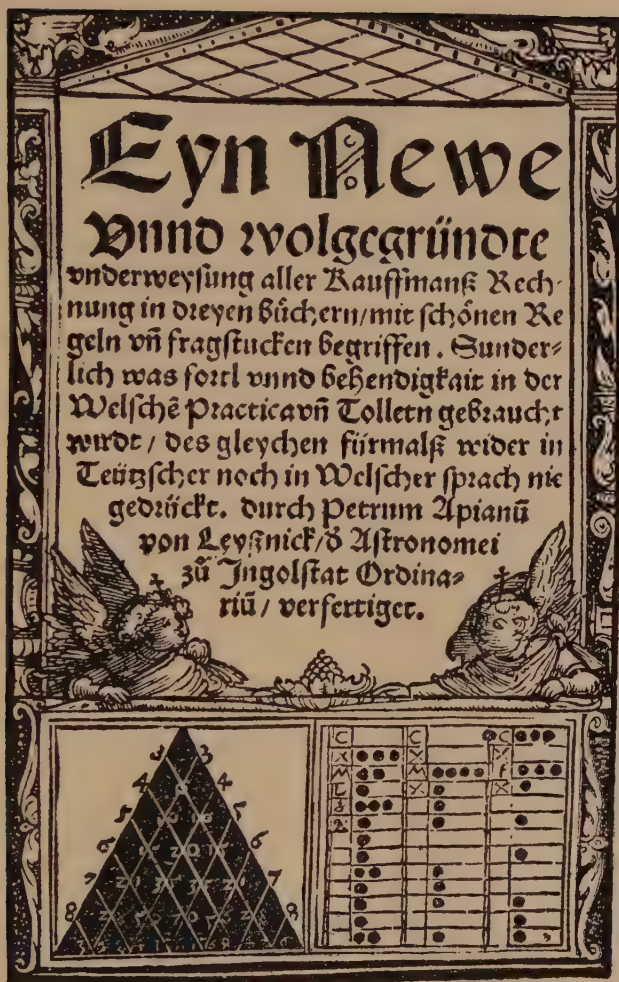 Eyn Newe
Vnnd wolgegründte
vnderweysung aller Kauffmanß Rech-
nung in dreyen büchern/mit schönen Re
geln vñ fragstucken begriffen. Sunder-
lich was fortl vnnd behendigkait in der
Welschē Practica vñ Tolletn gebraucht
wirdt / des gleychen fürmalß wider in
Teützscher noch in Welscher sprach nie
gedrückt. durch Petrum Apianū
von Leyßnick/ď Astronomei
zů Jngolstat Ordina-
riū / verfertiget.
3 3
4 4
5 10 10 5
6 20 6
7 21 35 35 21 7
8 70 8
C C C
X X
M M
X X